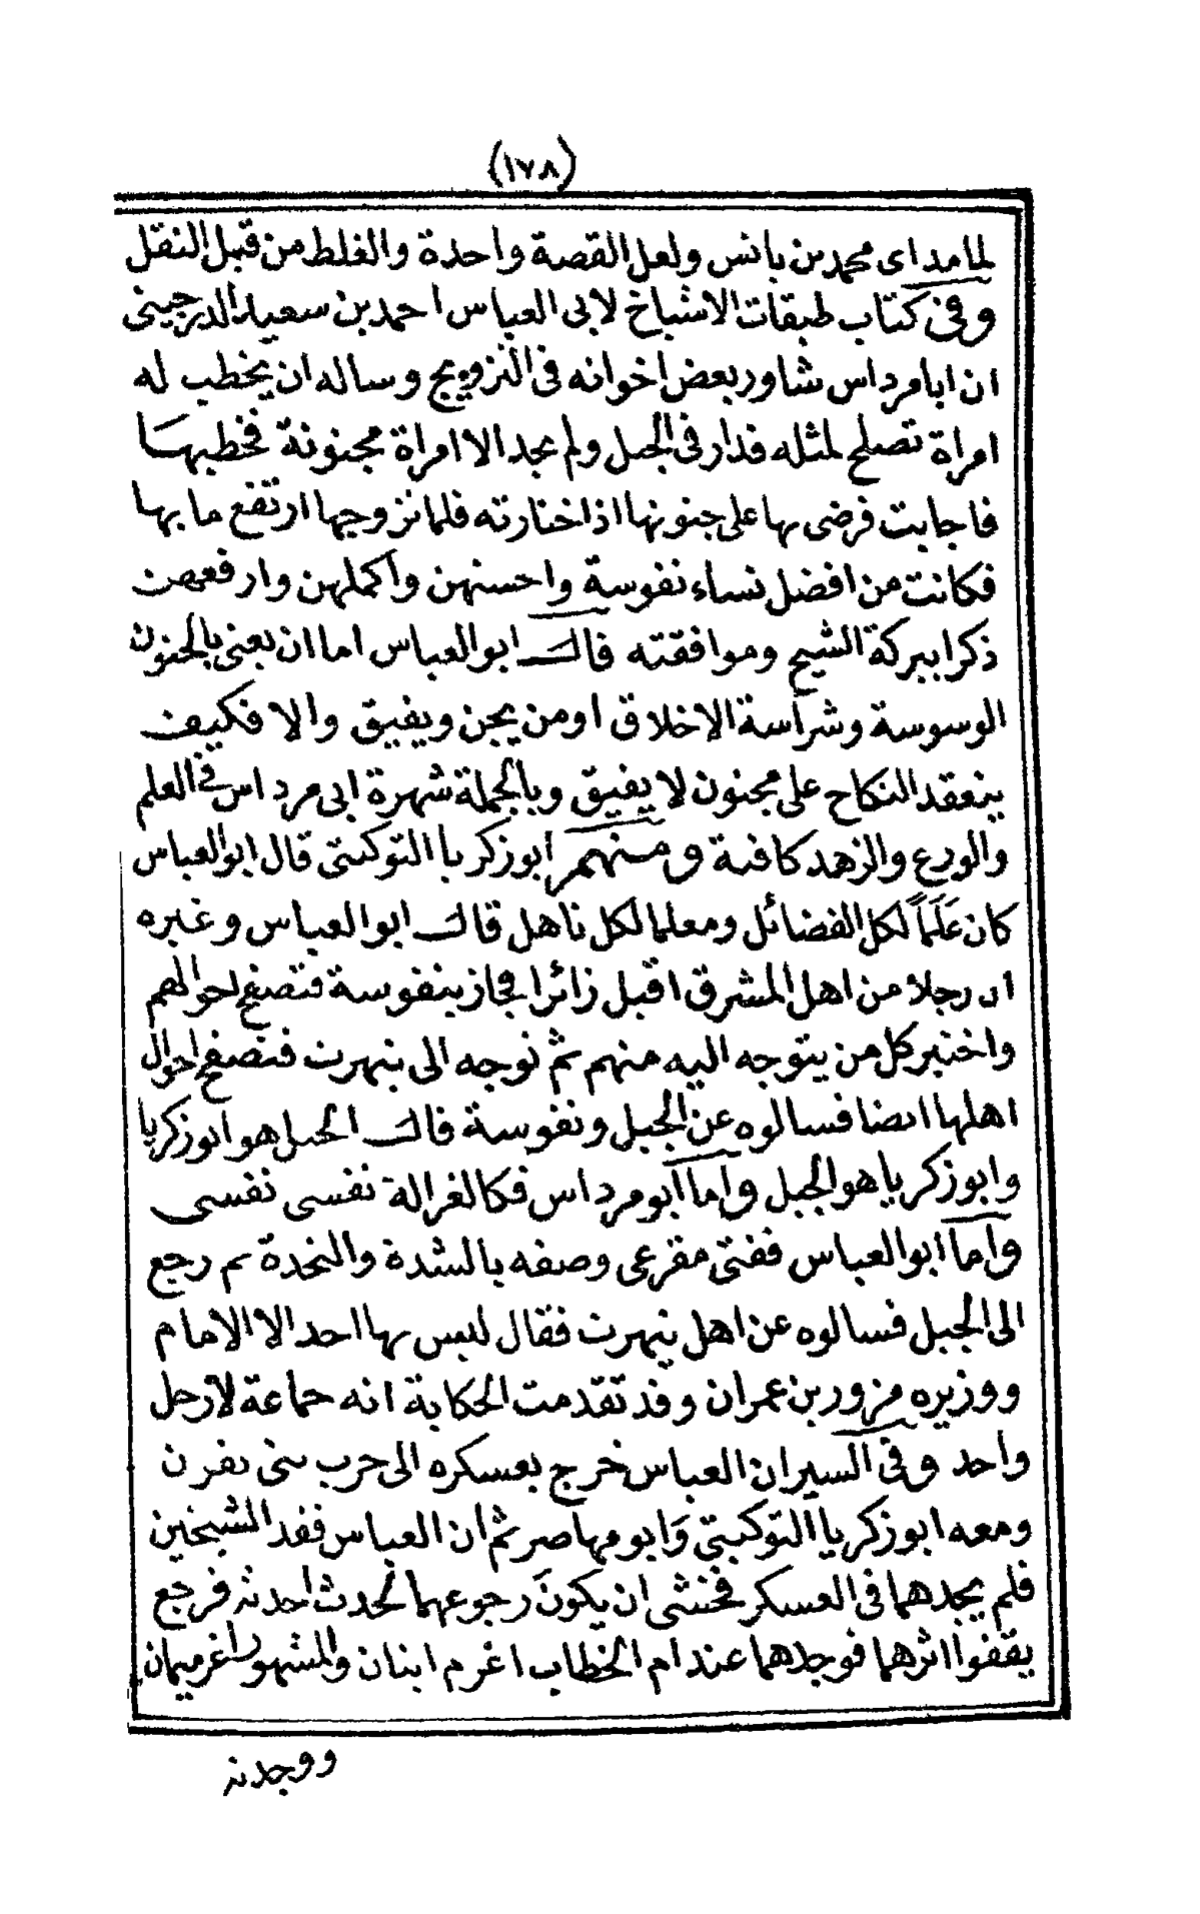 (١٧٨)
لمامداى محمد بن يانس ولعل القصة واحدة والغلط من قبل النقل
وفى كتاب طبقات الاشياخ لابى العباس احمد بن سعيد الدرجينى
ان ابا مرداس شاور بعض اخوانه فى التزويج وساله ان يخطب له
امراة تصلح لمثله فدار فى الجبل ولم يجد الا امراة مجنونة فخطبها
فاجابت فرضى بها على جنونها اذ اختارته فلما تزوجها ارتفع ما بها
فكانت من افضل نساء نفوسة واحسنهن واكملهن وارفعهن
ذكرا ببركة الشيخ وموافقته قال ابو العباس اما ان يعنى بالجنون
الوسوسة وشراسة الاخلاق او من يجن ويفيق والا فكيف
ينعقد النكاح على مجنون لا يفيق وبالجملة شهرة ابى مرداس فى العلم
والورع والزهد كافية ومنهم ابو زكريا التوكيتى قال ابو العباس
كان عَلَماً لكل الفضائل ومعلما لكل ناهل قال ابو العباس وغيره
ان رجلا من اهل المشرق اقبل زائرا فجاز بنفوسة فتصفح احوالهم
واختبر كل من يتوجه اليه منهم ثم توجه الى تيهرت فتصفح احوال
اهلها ايضا فسالوه عن الجبل ونفوسة قال الجبل هو ابو زكريا
وابو زكريا هو الجبل واما ابو مرداس فكالغزالة نفسى نفسى
واما ابو العباس ففتى مقرعى وصفه بالشدة والنجدة ثم رجع
الى الجبل فسالوه عن اهل تيهرت فقال ليس بها احد الا الامام
ووزيره مزور بن عمران وقد تقدمت الحكاية انه جماعة لا رجل
واحد وفى السير ان العباس خرج بعسكره الى حرب بنى يفرن
ومعه ابو زكريا التوكيتى وَابو مهاصر ثم ان العباس ففقد الشيخين
فلم يجدهما فى العسكر فخشى ان يكونَ رجوعهما لحدث احدثه فرجع
يقفوا اثرهما فوجدهما عند ام الخطاب اغرم ابنان والمشهور اغرميمان
ووجدته